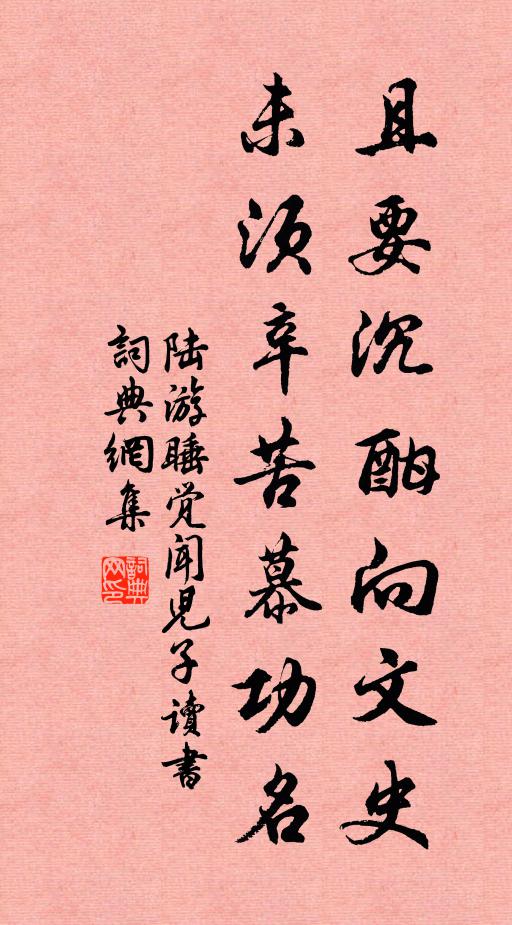 且要沉酣向文史
未须辛苦慕功名
陆游睡觉闻儿子讀書
詞典網集
詞典网印